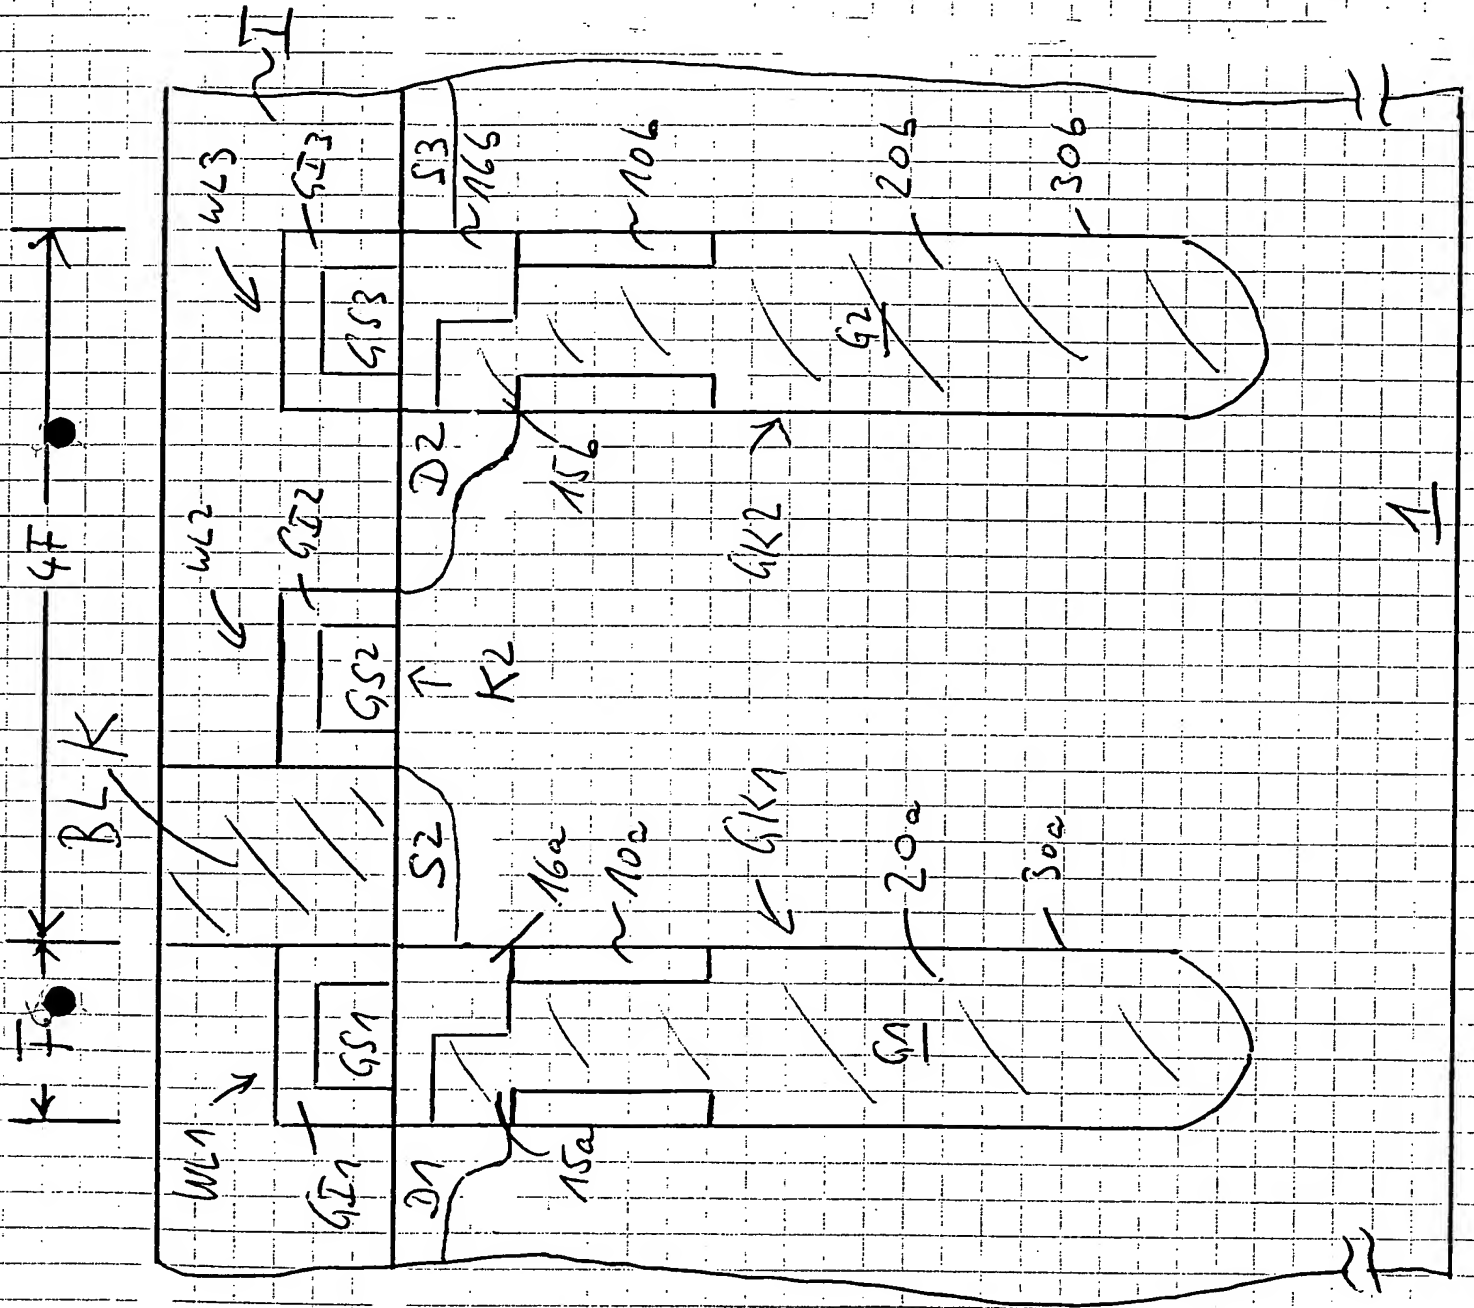 I
WL3
GI3
S3
16b
10b
20b
30b
GS3
G2
4F
D2
15b
GK2
1
WL2
GI2
GS2
K2
BLK
S2
16a
10a
GK1
20a
30a
F
GS1
G1
WL1
GI1
D1
15a